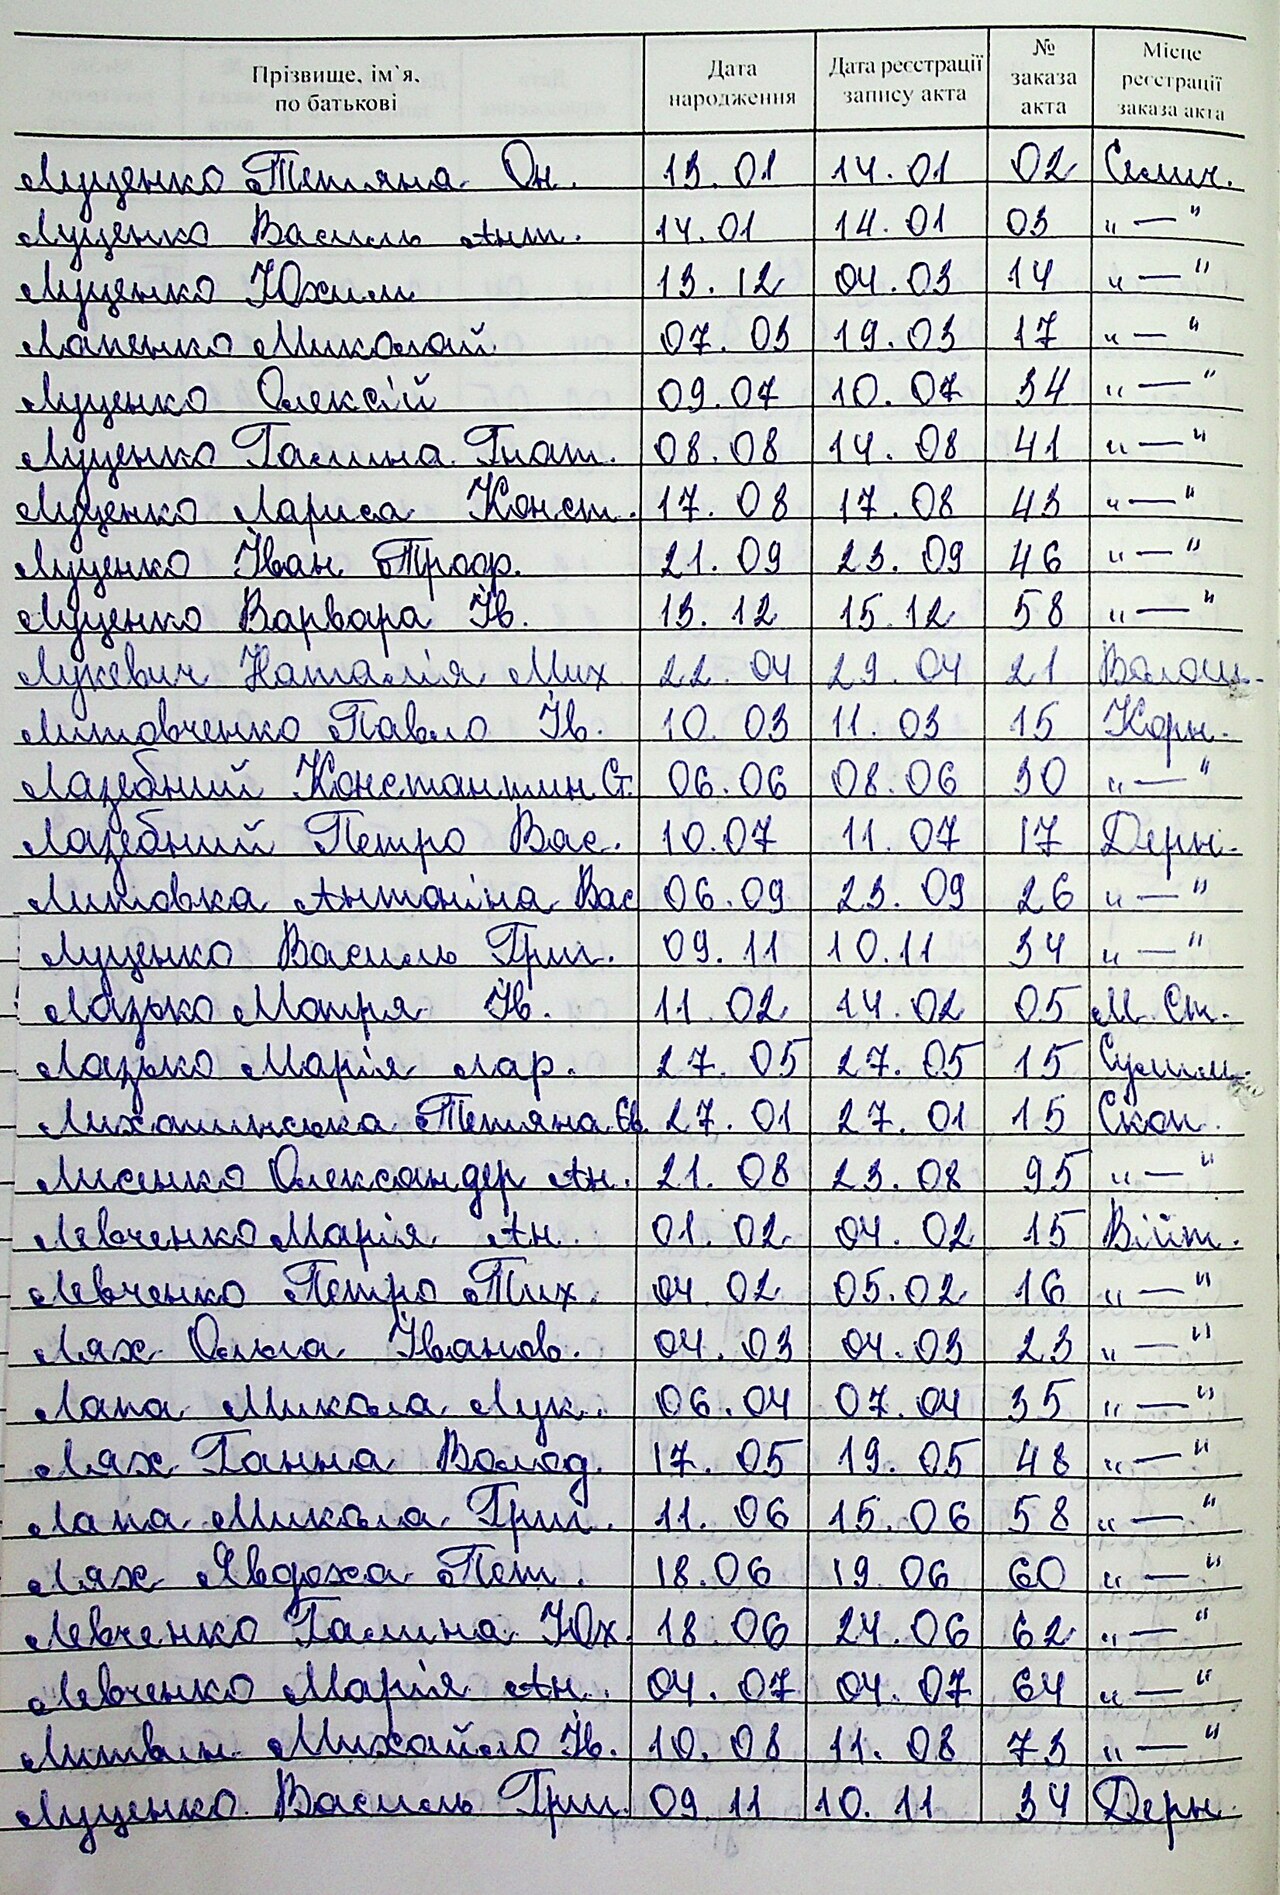 Прізвище, ім`я, по батькові Дата народження Дата реєстрації запису акта № заказа акта Місце реєстрації заказа акта
Луценко Тетяна Он. 13.01 14.01 02 Селич.
Луценко Василь Ант. 14.01 14.01 03 "—"
Луценко Юхим 13.12 04.03 14 "—"
Лапенко Миколай 07.03 19.03 17 "—"
Луценко Олексій 09.07 10.07 34 "—"
Луценко Галина Гнат. 08.08 14.08 41 "—"
Луценко Лариса Конст. 17.08 17.08 43 "—"
Луценко Іван Троф. 21.09 23.09 46 "—"
Луценко Варвара Ів. 13.12 15.12 58 "—"
Лукевич Наталія Мих 22.04 29.04 21 Волош.
Литовченко Павло Ів. 10.03 11.03 15 Корн.
Лазебний Константин Ст. 06.06 08.06 30 "—"
Лазебний Петро Вас. 10.07 11.07 17 Дерн.
Литовка Антоніна Вас 06.09 23.09 26 "—"
Луценко Василь Григ. 09.11 10.11 34 "—"
Лазько Мотря Ів. 11.02 14.02 05 М. Ст.
Лазько Марія Лар. 27.05 27.05 15 Сулим.
Тетяна Єв. 27.01 27.01 15 Скоп.
Лисенко Олександер Ан. 21.08 23.08 95 "—"
Левченко Марія Ан. 01.02 04.02 15 Війт.
Левченко Петро Тих. 04.02 05.02 16 "—"
Лях Ольга Іванов. 04.03 04.03 23 "—"
Лапа Микола Лук. 06.04 07.04 35 "—"
Лях Ганна Волод. 17.05 19.05 48 "—"
Лапа Микола Григ. 11.06 15.06 58 "—"
Лях Явдоха Пет. 18.06 19.06 60 "—"
Левченко Галина Юх. 18.06 24.06 62 "—"
Левченко Марія Ан. 04.07 04.07 64 "—"
Литвин Михайло Ів. 10.08 11.08 73 "—"
Луценко Василь Григ. 09.11 10.11 34 Дерн.